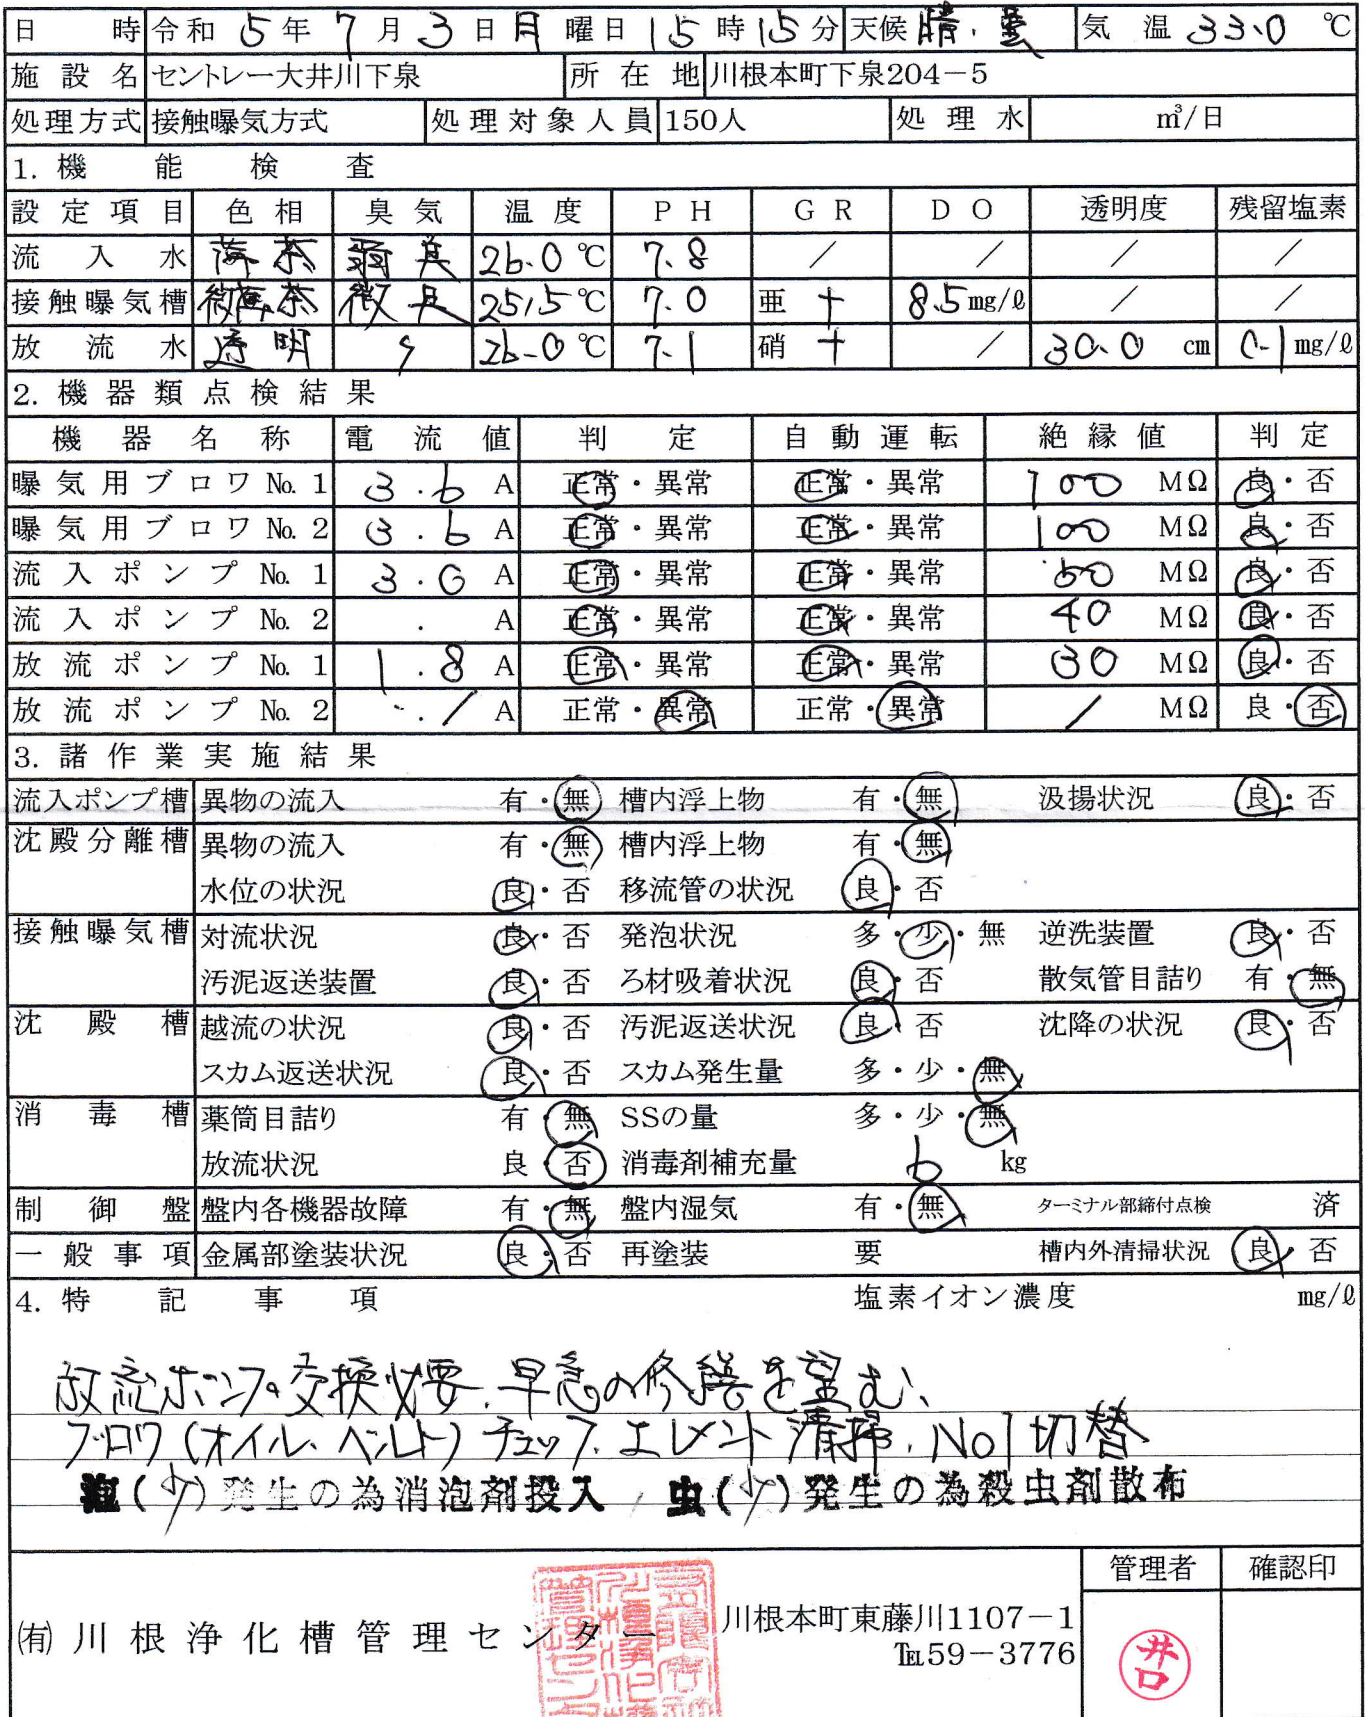 日 時 令和 5 年 7 月 3 日 月 曜日 15 時 15 分 天候 晴・曇 気温 33.0 ℃
施設名 セントレー大井川下泉 所在地 川根本町下泉204-5
処理方式 接触曝気方式 処理対象人員 150人 処理水 ㎥/日
1. 機能検査
設定項目 色相 臭気 温度 PH GR DO 透明度 残留塩素
流入水 薄茶 弱臭 26.0 ℃ 7.8 / / / /
接触曝気槽 微薄茶 微臭 25.5 ℃ 7.0 亜 + 8.5 mg/ℓ / /
放流水 透明 〃 26.0 ℃ 7.1 硝 + / 30.0 cm 0.1 mg/ℓ
2. 機器類点検結果
機器名称 電流値 判定 自動運転 絶縁値 判定
曝気用ブロワ No. 1 3.6 A 正常・異常 正常・異常 100 MΩ 良・否
曝気用ブロワ No. 2 3.6 A 正常・異常 正常・異常 100 MΩ 良・否
流入ポンプ No. 1 3.0 A 正常・異常 正常・異常 50 MΩ 良・否
流入ポンプ No. 2 . A 正常・異常 正常・異常 40 MΩ 良・否
放流ポンプ No. 1 1.8 A 正常・異常 正常・異常 30 MΩ 良・否
放流ポンプ No. 2 . / A 正常・異常 正常・異常 / MΩ 良・否
3. 諸作業実施結果
流入ポンプ槽 異物の流入 有・無 槽内浮上物 有・無 汲揚状況 良・否
沈殿分離槽 異物の流入 有・無 槽内浮上物 有・無
水位の状況 良・否 移流管の状況 良・否
接触曝気槽 対流状況 良・否 発泡状況 多・少・無 逆洗装置 良・否
汚泥返送装置 良・否 ろ材吸着状況 良・否 散気管目詰り 有・無
沈殿槽 越流の状況 良・否 汚泥返送状況 良・否 沈降の状況 良・否
スカム返送状況 良・否 スカム発生量 多・少・無
消毒槽 薬筒目詰り 有・無 SSの量 多・少・無
放流状況 良・否 消毒剤補充量 6 kg
制御盤 盤内各機器故障 有・無 盤内湿気 有・無 ターミナル部締付点検 済
一般事項 金属部塗装状況 良・否 再塗装 要 槽内外清掃状況 良・否
4. 特記事項 塩素イオン濃度 mg/ℓ
放流ポンプ交換必要、早急の修繕を望む、
ブロワ(オイル、ベルト)チェック、エレメント清掃、No1切替
泡(少)発生の為消泡剤投入、虫(少)発生の為殺虫剤散布
管理者 確認印
㈲川根浄化槽管理センター 川根本町東藤川1107-1
℡59-3776
井口